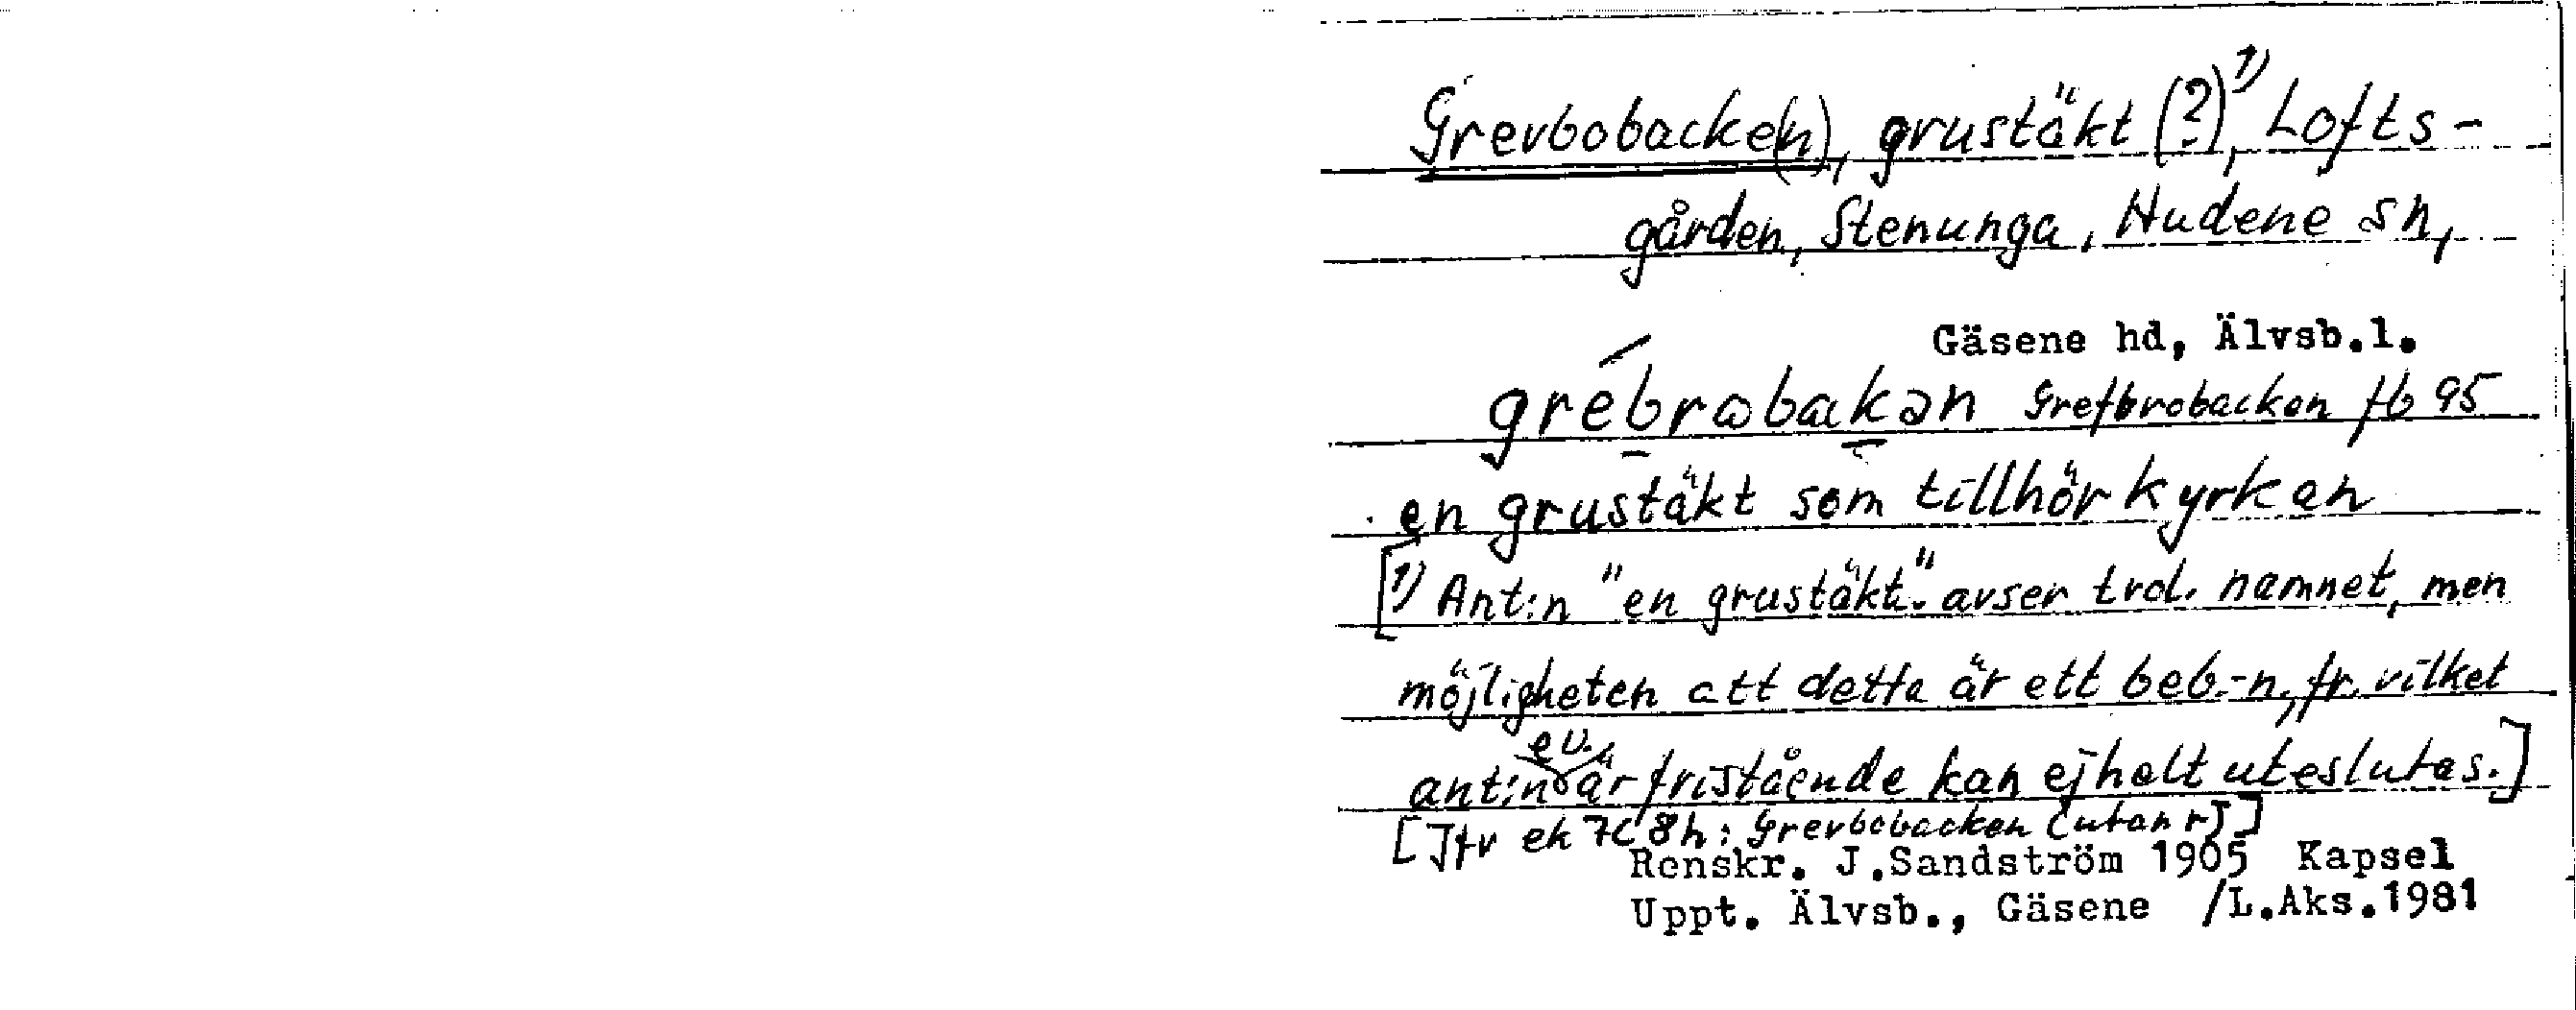 Grevbobacke(n), grustäkt (?)¹⁾, Lofts-
gården, Stenunga, Hudene sn,
Gäsene hd, Älvsb.l.
grébrabakən Grefbrobacken fb 95
en grustäkt som tillhör kyrkan
[¹⁾ Ant:n "en grustäkt" avser trol. namnet, men
möjligheten att detta är ett beb.-n, fr. vilket
ant:n ev. är fristående kan ej helt uteslutas.]
[Jfr ek 7C 8h: Grevbobacken [utan r]]
Renskr. J.Sandström 1905 Kapsel
Uppt. Älvsb., Gäsene /L.Aks.1981